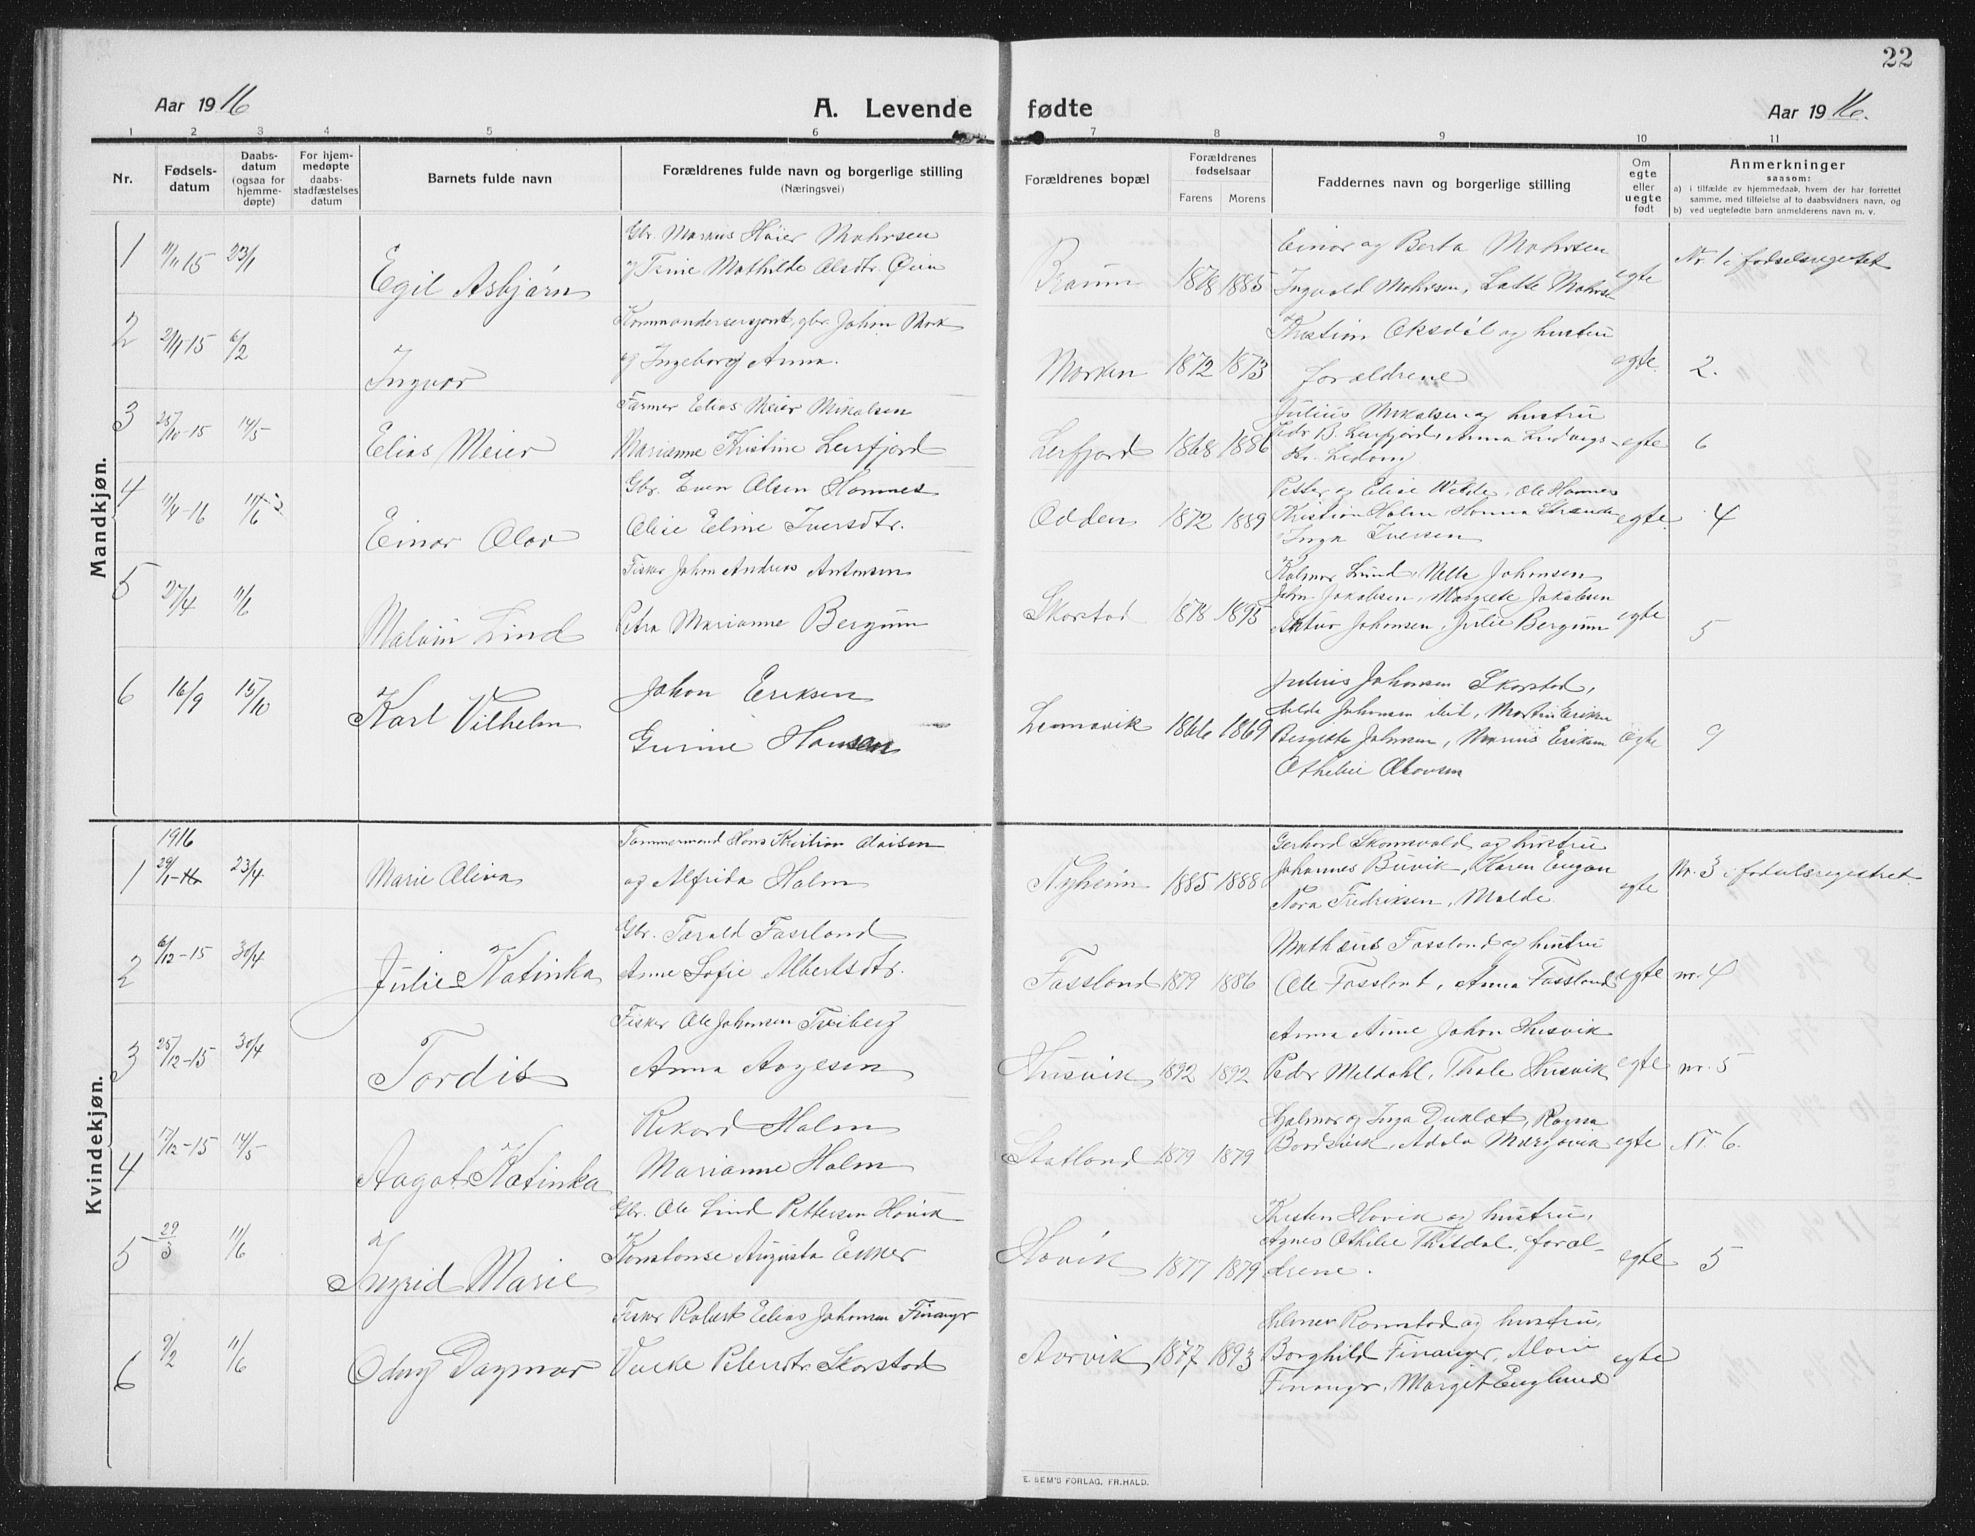 22
Aar 1916
A. Levende fødte
Aar 1916.
1 2 3 4 5 6 7 8 9 10 11
Nr.
Fødsels-
datum
Daabs-
datum
(ogsaa for
hjemme-
døpte)
For hjem-
medøpte
daabs-
stadfæstelses
datum
Barnets fulde navn
Forældrenes fulde navn og borgerlige stilling
(Næringsvei)
Forældrenes bopæl
Forældrenes
fødselsaar
Farens Morens
Faddernes navn og borgerlige stilling
Om
egte
eller
uegte
født
Anmerkninger
saasom:
a) i tilfælde av hjemmedaab, hvem der har forrettet
samme, med tilføielse af to daabsvidners navn, og
b) ved uegtefødte barn anmelderens navn m. v.
Mandkjøn.
1 11/11 15 23/1 Egil Asbjørn
Gbr. Markus Høier Mohrsen
og Trine Mathilde Olsdtr. Øien
Braum 1878 1885
Einar og Berta Mohrsen
Ingvald Mohrsen, Lotte Mohrsen
egte Nr. 1 i fødselsregistret
2 2/11-15 6/2 Ingvar
Kommandersersjant, gbr. Johan Mork
og Ingeborg Anna.
Morken 1872 1873
Kristian Oksdøl og hustru
forældrene
egte. 2.
3 25/10-15 14/5 Elias Meier
Farmer Elias Meier Mikalsen
Marianne Kristine Lerfjord
Lerfjord 1868 1886
Julius Mikalsen og hustru
Pedr B. Lerfjord, Anna Ludvigs-
egte 6
4 11/4-16 11/6 Einar Olav
Gbr. Even Olsen Homnes
Olise Eline Iversdtr.
Odden 1872 1889
Petter og Elise Welde, Ole Homnes
Kristian Holm, Hanna Strande
Inga Iversen
egte 4
5 27/4 11/6 Malvin Lind
Fisker Johan Andreas Antonsen
Petra Marianne Bergum
Skorstad 1878 1895
Kalmar Lund, Nelle Johansen
John Jakobsen, Margrete Jakobsen
Artur Johansen, Julie Bergum
egte 5
6 16/9 15/10 Karl Vilhelm
Johan Eriksen
Gurine Hansen
Lennavik 1866 1869
Julius Johansen Skorstad,
Alda Johansen ibid, Martin Eriksen
Bergitte Johansen, Marius Eriksen
Othelie Olavsen
egte 9
Kvindekjøn.
1916
1 29/1-16 23/4 Marie Oliva
Tømmermand Hans Kristian Olaisen
og Alfrida Holm
Nyheim 1885 1888
Gerhard Skomsvold og hustru
Johannes Buvik, Karen Engan
Nora Fredriksen, Malde
egte Nr. 3 i fødselsregistret
2 6/12-15 30/4 Julie Katinka
Gbr. Torald Fossland
Anne Sofie Albertsdtr.
Fossland 1879 1886
Mathæus Fossland og hustru
Ole Fossland, Anna Fossland
egte nr. 4
3 25/12-15 30/4 Tordis
Fisker Ole Johansen Tviberg
Anna Aagesen
Husvik 1892 1892
Anna Aune Johan Husvik
Peder Meldahl, Thale Husvik
egte nr. 5
4 17/12-15 14/5 Aagot Katinka
Rikord Holm
Marianne Holm
Statland 1879 1879
Hjalmar og Inga Duklæt, Ragna
Bordsvik, Adela Margavik
egte Nr. 6.
5 29/3 11/6 Ingrid Marie
Gbr. Ole Lind Pettersen Hovik
Konstanse Augusta Ekker
Hovik 1877 1879
Kristen Hovik og hustru,
Agnes Othilie Thisdal, foræl-
drene.
egte 5
6 9/2 11/6 Odny Dagmar
Fisker Robert Elias Johansen Finanger
Valke Petersdtr Skorstad
Aarvik 1877 1893
Helmer Romstad og hustru,
Borghild Finanger, Alvin
Finanger, Margit Englund
egte
E. SEM'S FORLAG, FR.HALD.